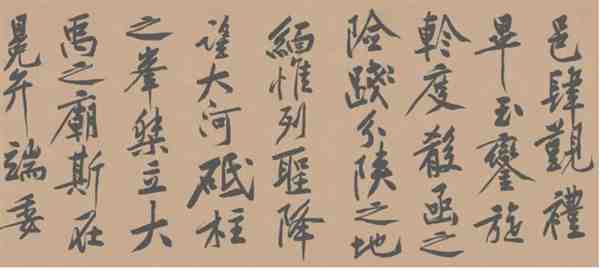 邑肆觀禮
畢玉鑾旋
軫度殽函之
險踐分陝之地
緬惟列聖降
望大河砥柱
之峯桀立大
禹之廟斯在
冕弁端委